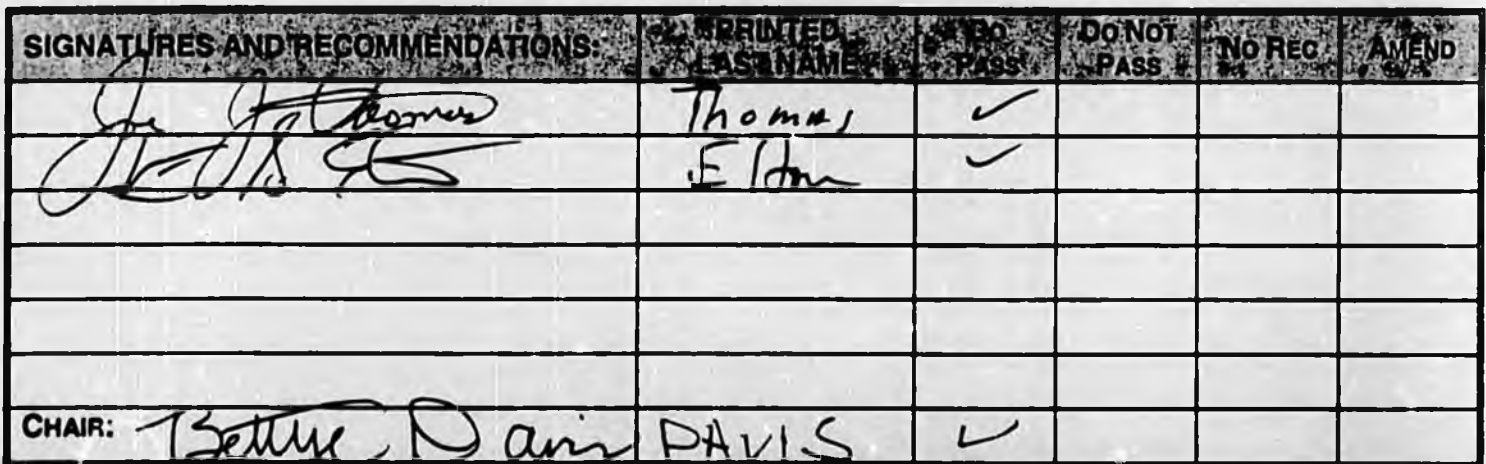 SIGNATURES AND RECOMMENDATIONS: PRINTED LAST NAME DO PASS DO NOT PASS NO REC AMEND
Thomas Thomas ✓
Elton ✓
CHAIR: Bettye Davis DAVIS ✓